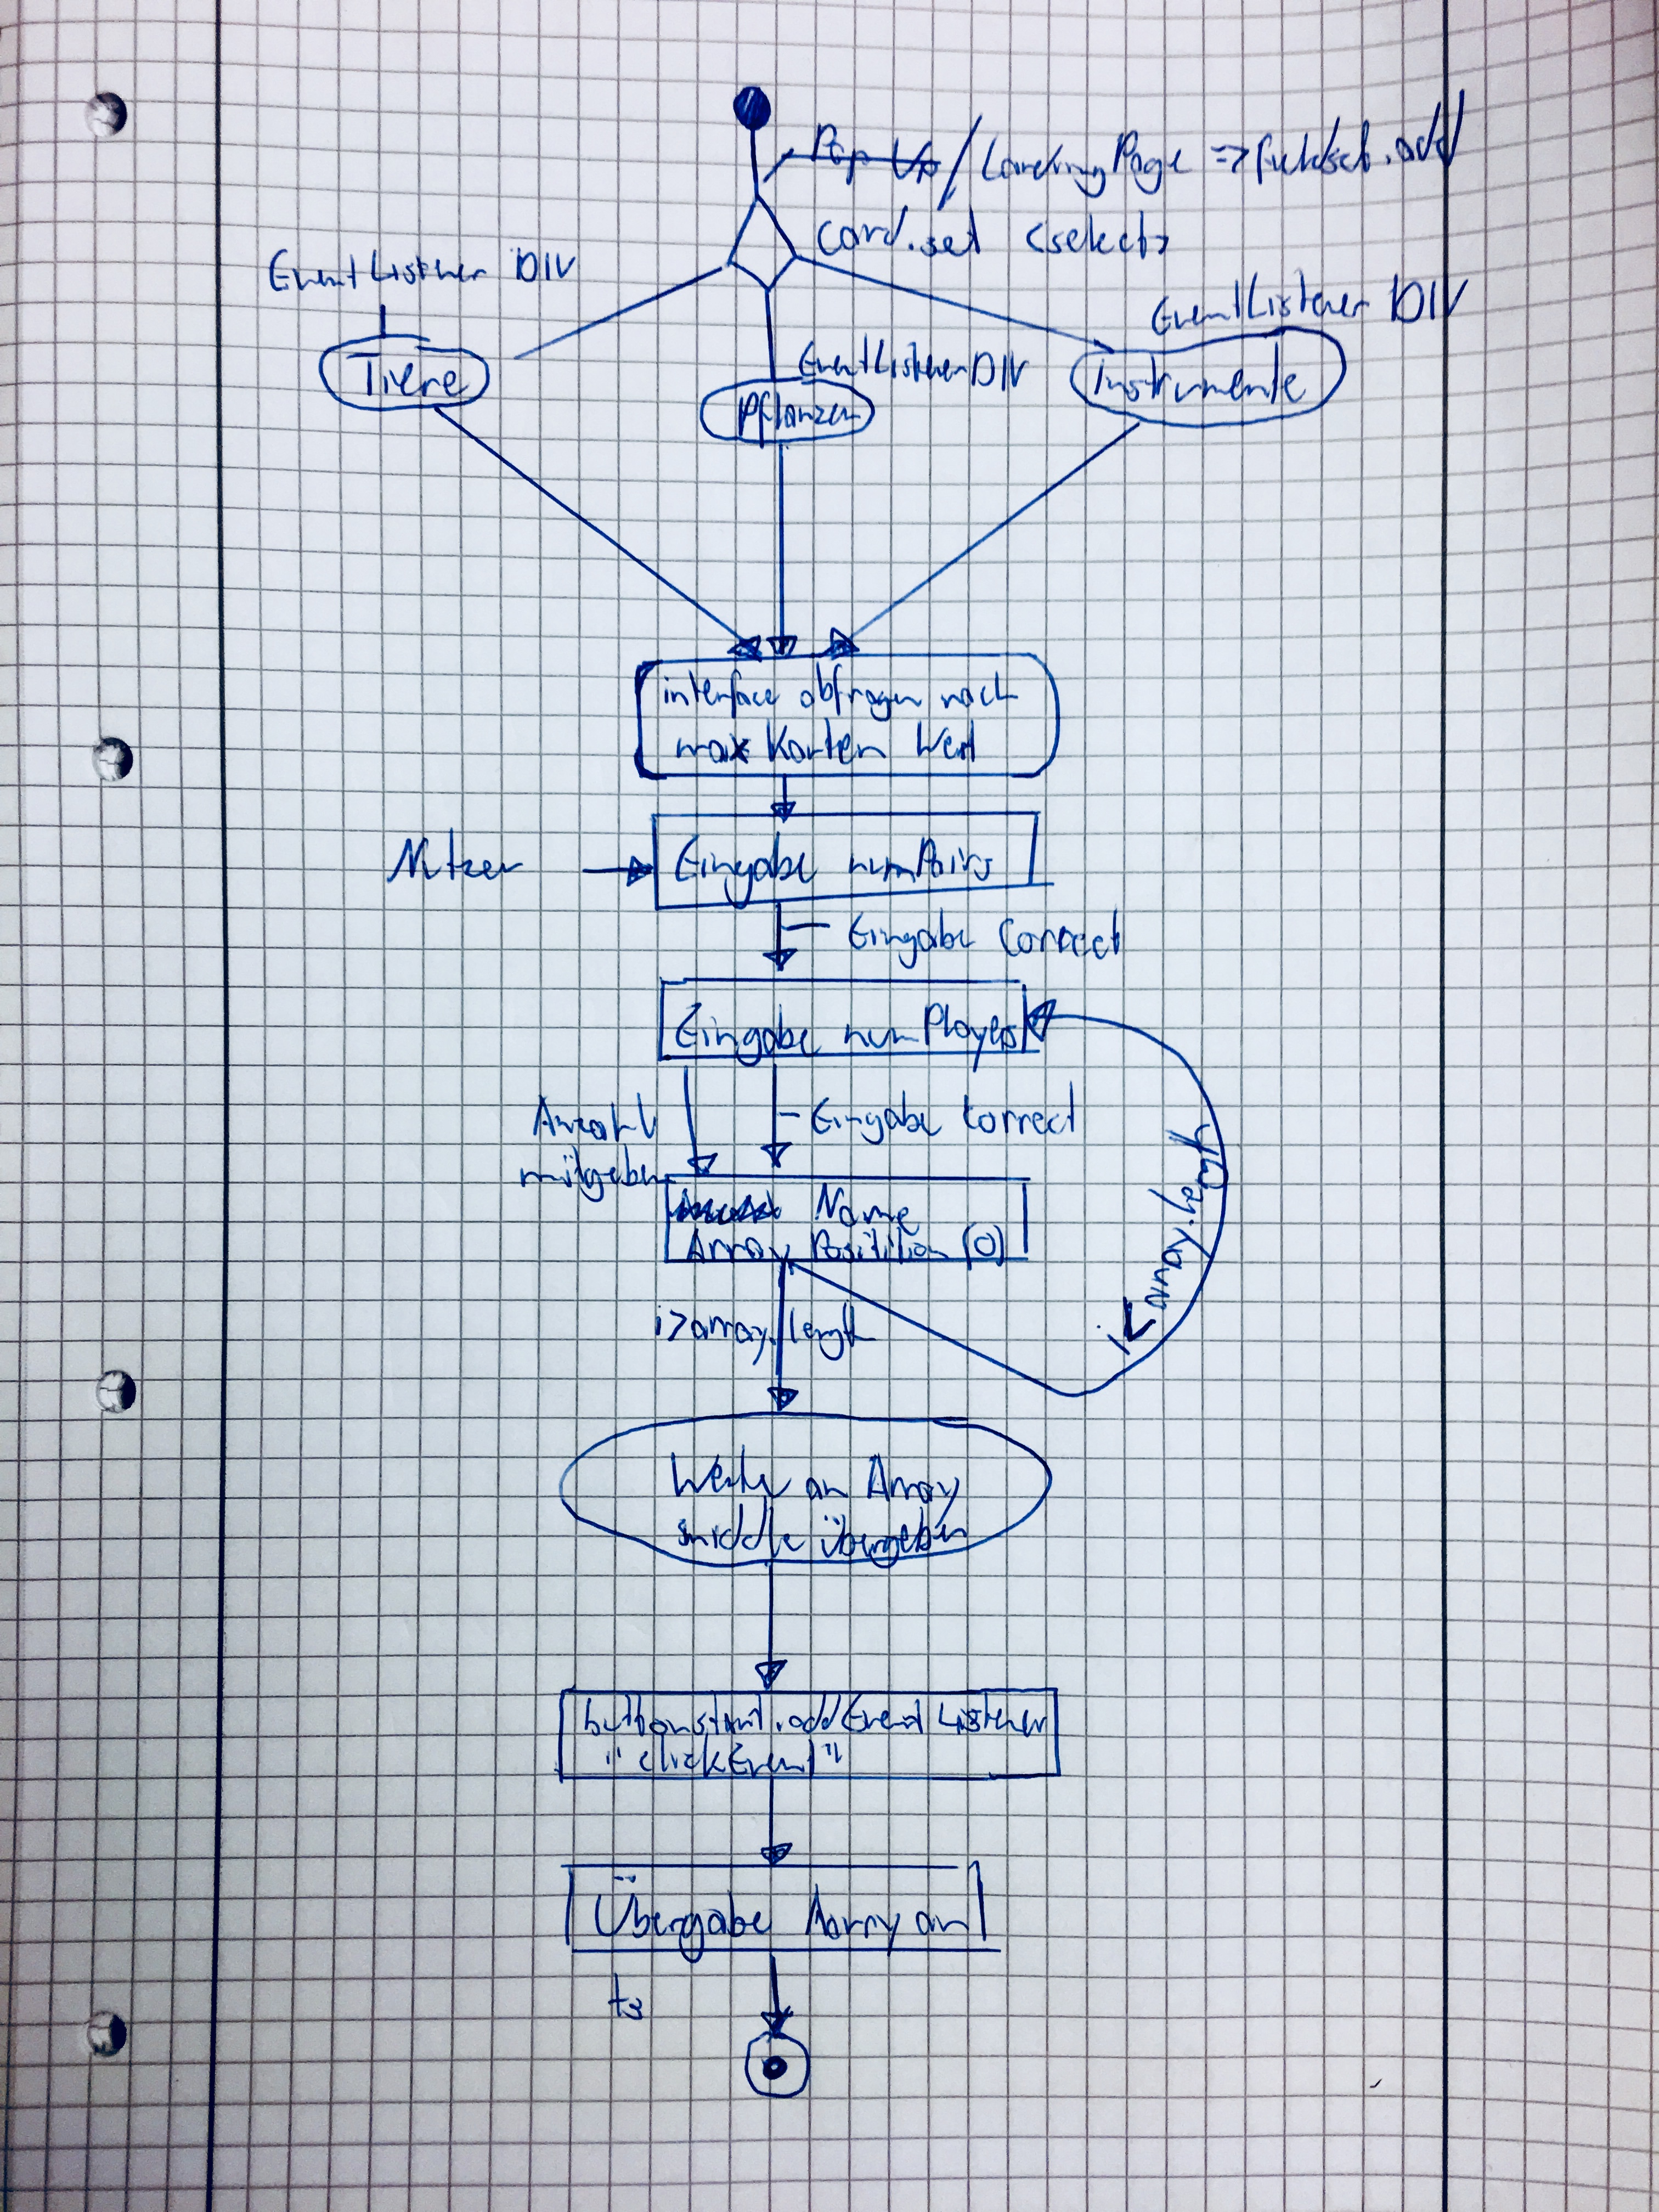 Pop Up / Landing Page => fieldset.add
card.set <select>
EventListener DIV
EventListener DIV
Tiere
EventListener DIV
Pflanzen
Instrumente
interface abfragen nach
max Karten Wert
Nutzer
Eingabe numPairs
Eingabe Correct
Eingabe numPlayers
Anzahl
mitgeben
Eingabe Correct
Name
Array Position (0)
i>array.length
i< array.length
Werte an Array
middle übergeben
buttonstart.addEventListener
"clickEvent"
Übergabe Array an
ts